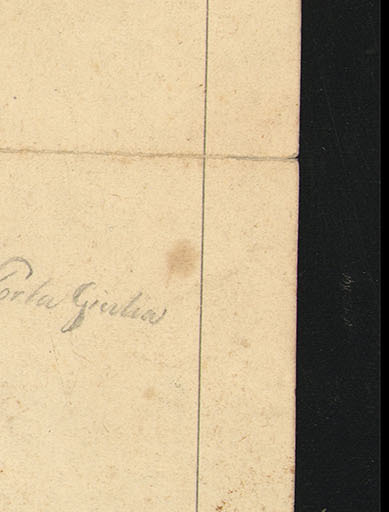 Porta Giulia